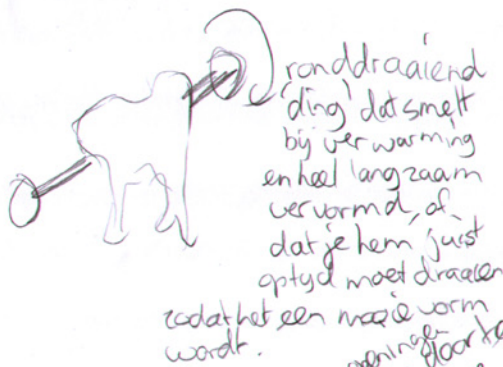 ronddraaiend
'ding' dat smelt
bij verwarming
en heel langzaam
vervormd, of
dat je hem juist
optijd moet draaien
zodat het een mooie vorm
wordt.